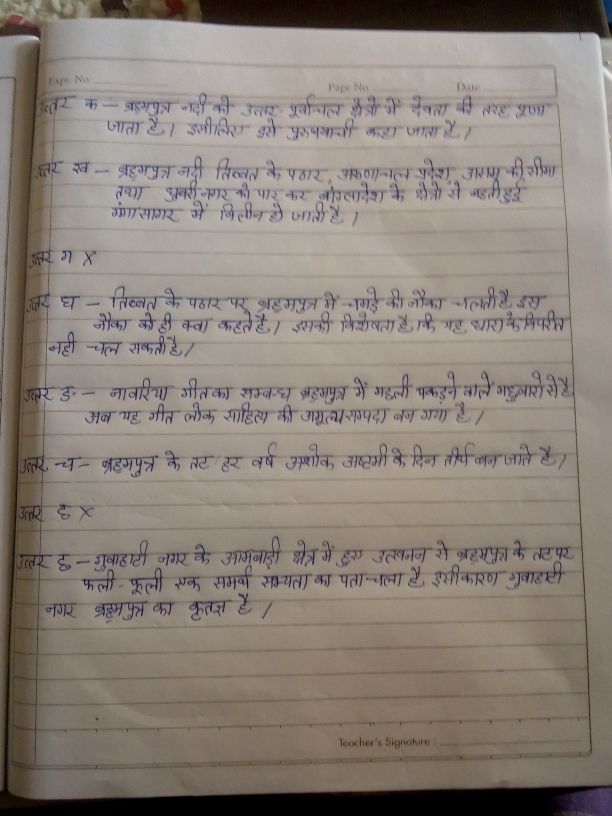 Expt. No.
Page No. Date
उत्तर क – ब्रह्मपुत्र नदी को उत्तर पूर्वांचल क्षेत्रो में देवता की तरह पूजा
जाता है। इसीलिए इसे पुरुषवाची कहा जाता है।
उत्तर ख – ब्रह्मपुत्र नदी तिब्बत के पठार, अरुणाचल प्रदेश, असम की सीमा
तथा धुबरी नगर को पार कर बांग्लादेश के क्षेत्रो से बहती हुई
गंगासागर में विलीन हो जाती है।
उत्तर ग x
उत्तर घ – तिब्बत के पठार पर ब्रह्मपुत्र में चमड़े की नौका चलती है इस
नौका को ही क्वा कहते है। इसकी विशेषता है कि यह धारा के विपरीत
नही चल सकती है।
उत्तर ङ – नावरिया गीत का सम्बन्ध ब्रह्मपुत्र में मछली पकड़ने वाले मछुवारो से है
अब यह गीत लोक साहित्य की अमूल्य सम्पदा बन गया है।
उत्तर च – ब्रह्मपुत्र के तट हर वर्ष अशोक अष्टमी के दिन तीर्थ बन जाते है।
उत्तर छ x
उत्तर छ – गुवाहाटी नगर के आमबाड़ी क्षेत्र में हुए उत्खनन से ब्रह्मपुत्र के तट पर
फली-फूली एक समर्थ सभ्यता का पता चला है इसीकारण गुवाहाटी
नगर ब्रह्मपुत्र का कृतज्ञ है।
Teacher's Signature :